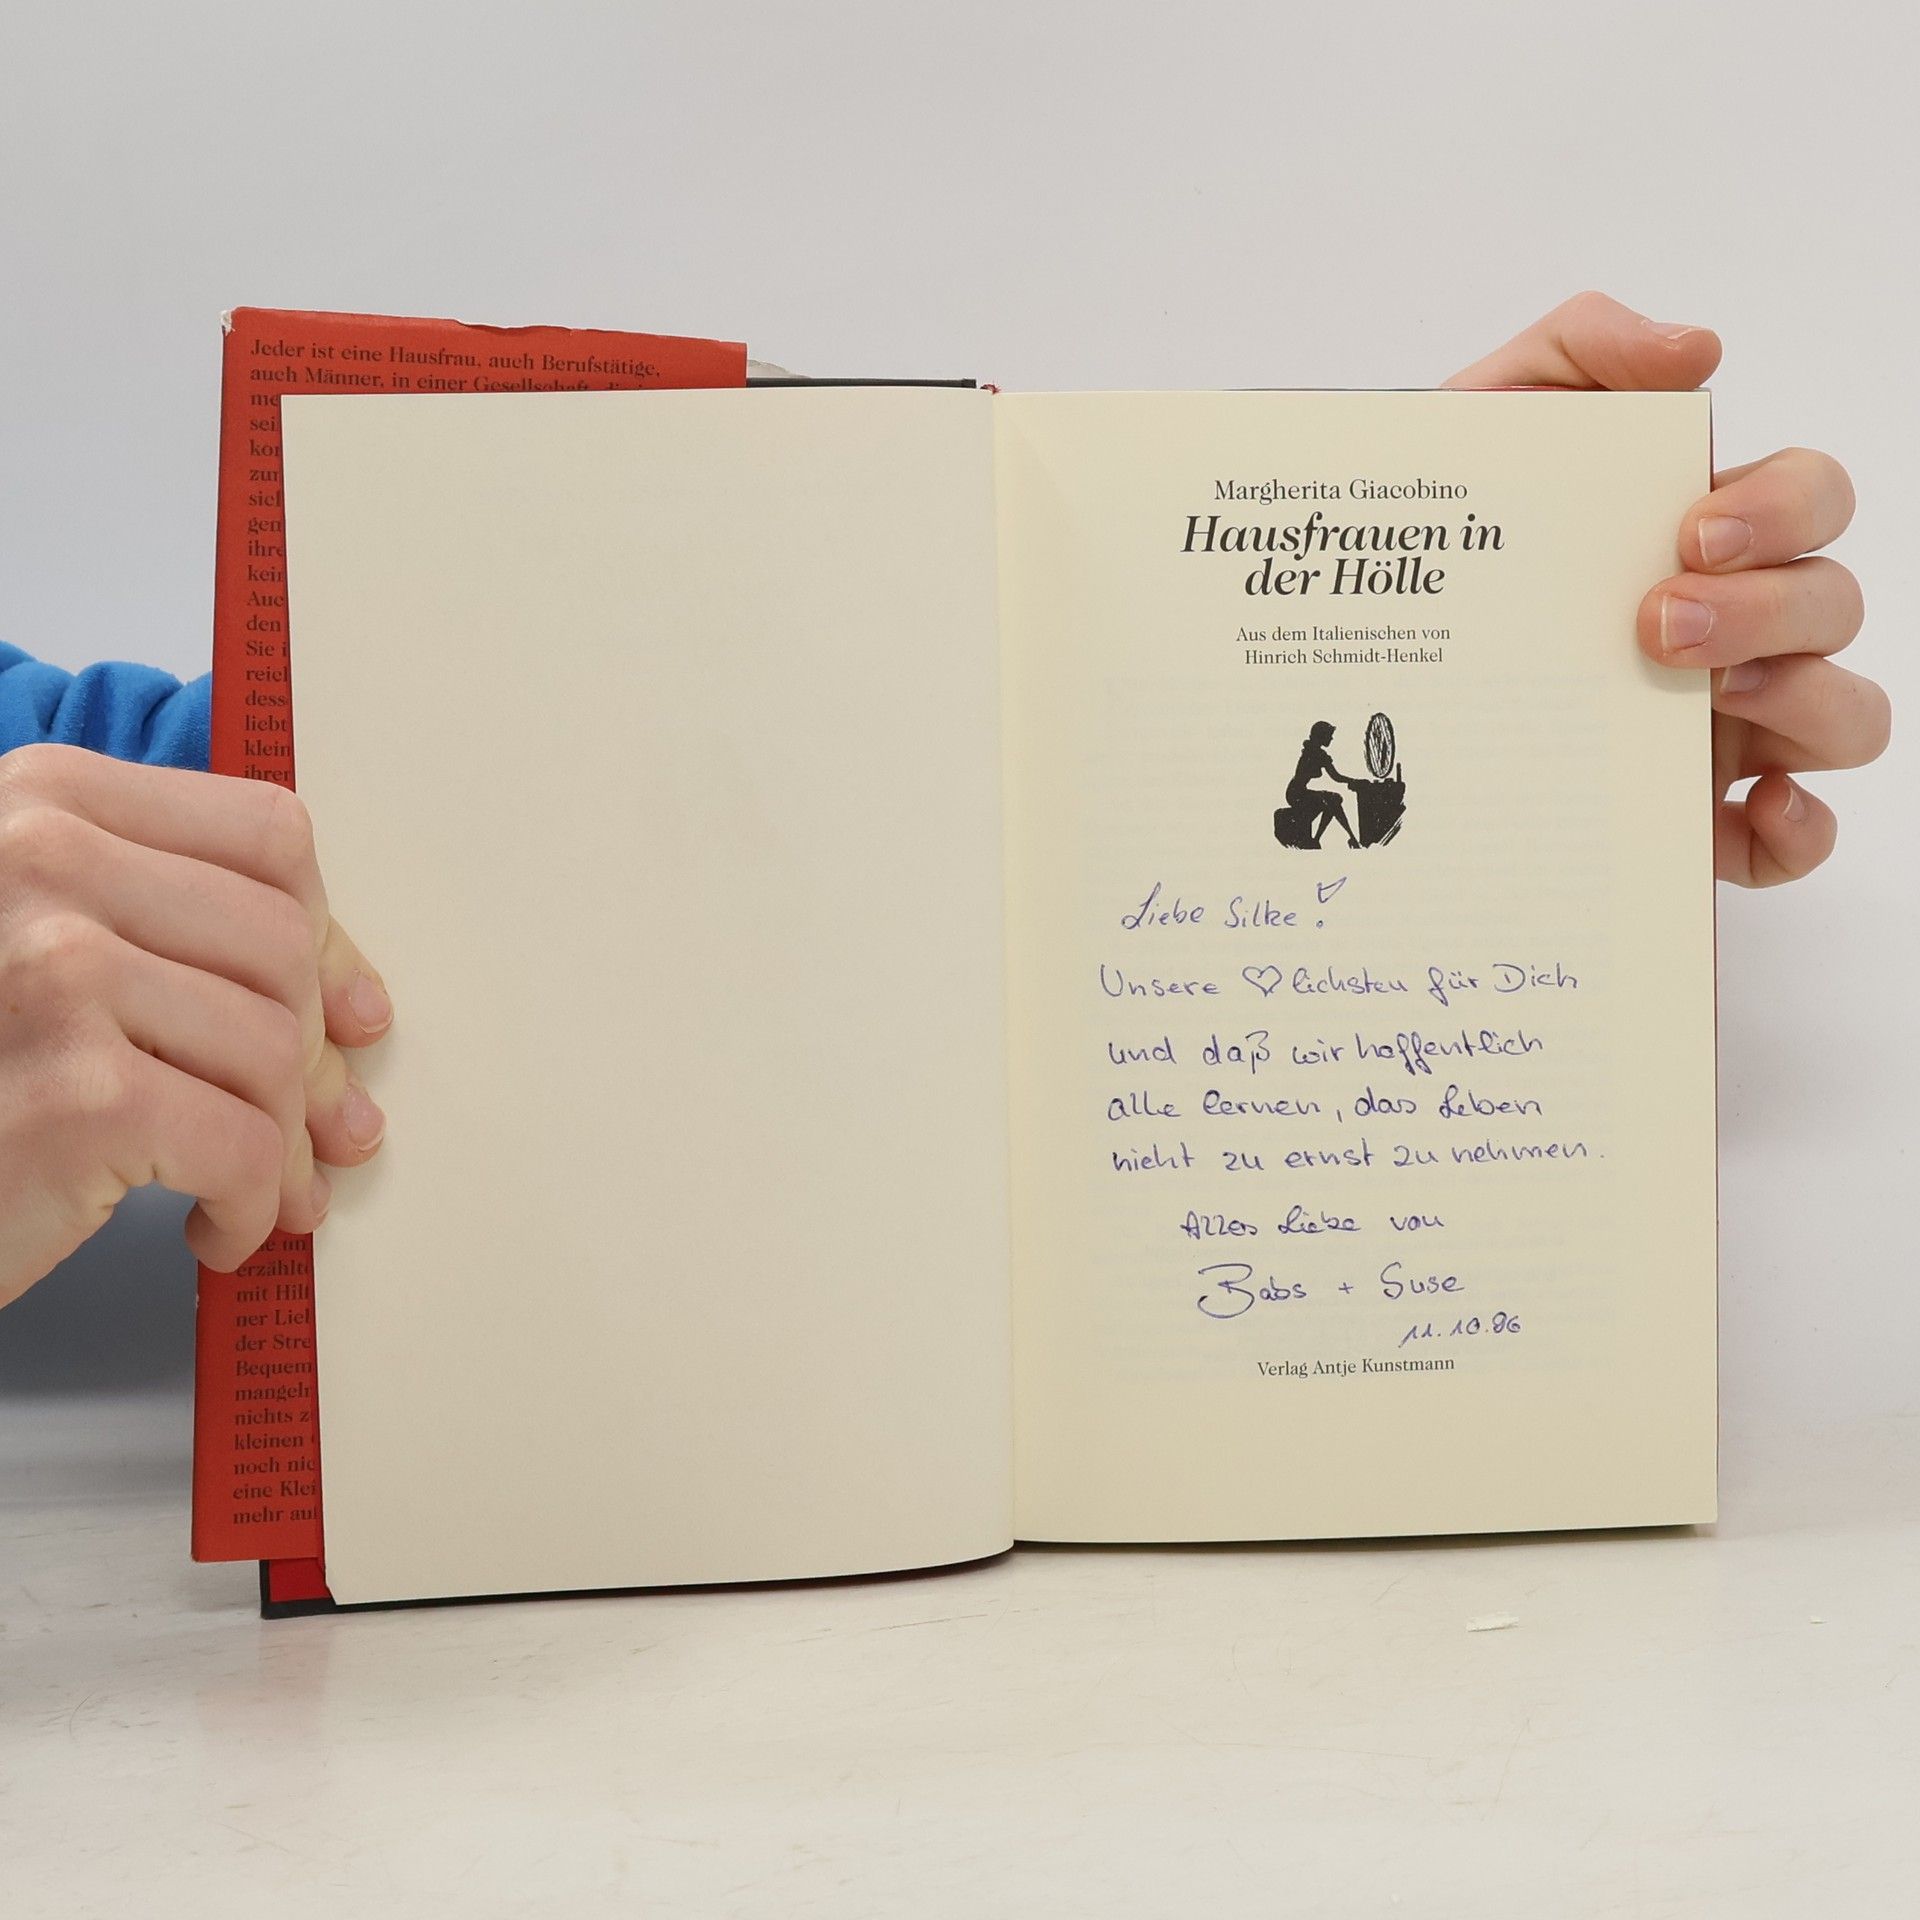 Jeder ist eine Hausfrau, auch Berufstätige,
auch Männer, in einer Gesellschaft
me
sei
kon
zur
sich
gen
ihre
kein
Auc
den
Sie i
reich
dess
liebt
klein
ihrer
erzählte
mit Hilf
ner Lie
der Stre
Bequem
mangeln
nichts z
kleinen
noch nic
eine Klei
mehr auf
Margherita Giacobino
Hausfrauen in
der Hölle
Aus dem Italienischen von
Hinrich Schmidt-Henkel
Liebe Silke!
Unsere ♡lichsten für Dich
und daß wir hoffentlich
alle lernen, das Leben
nicht zu ernst zu nehmen.
Alles Liebe von
Babs + Suse
11.10.96
Verlag Antje Kunstmann